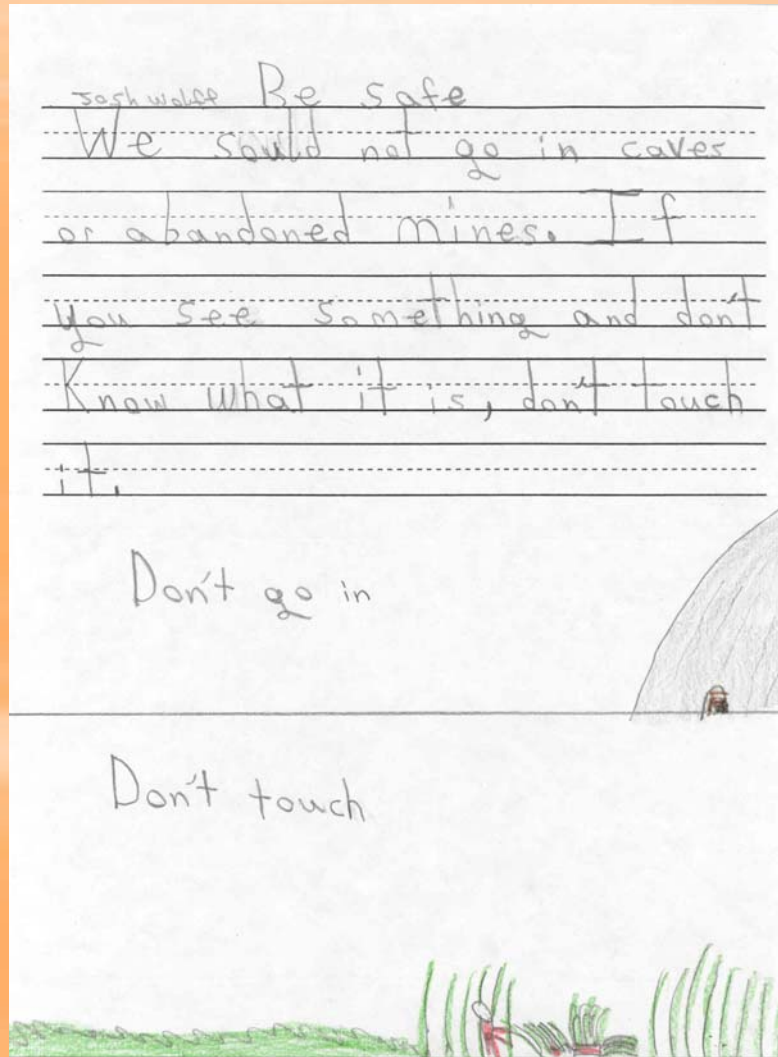 Josh Wolff Be safe
We sould not go in caves
or abandoned mines. If
you see something and don't
Know what it is, don't touch
it.
Don't go in
Don't touch